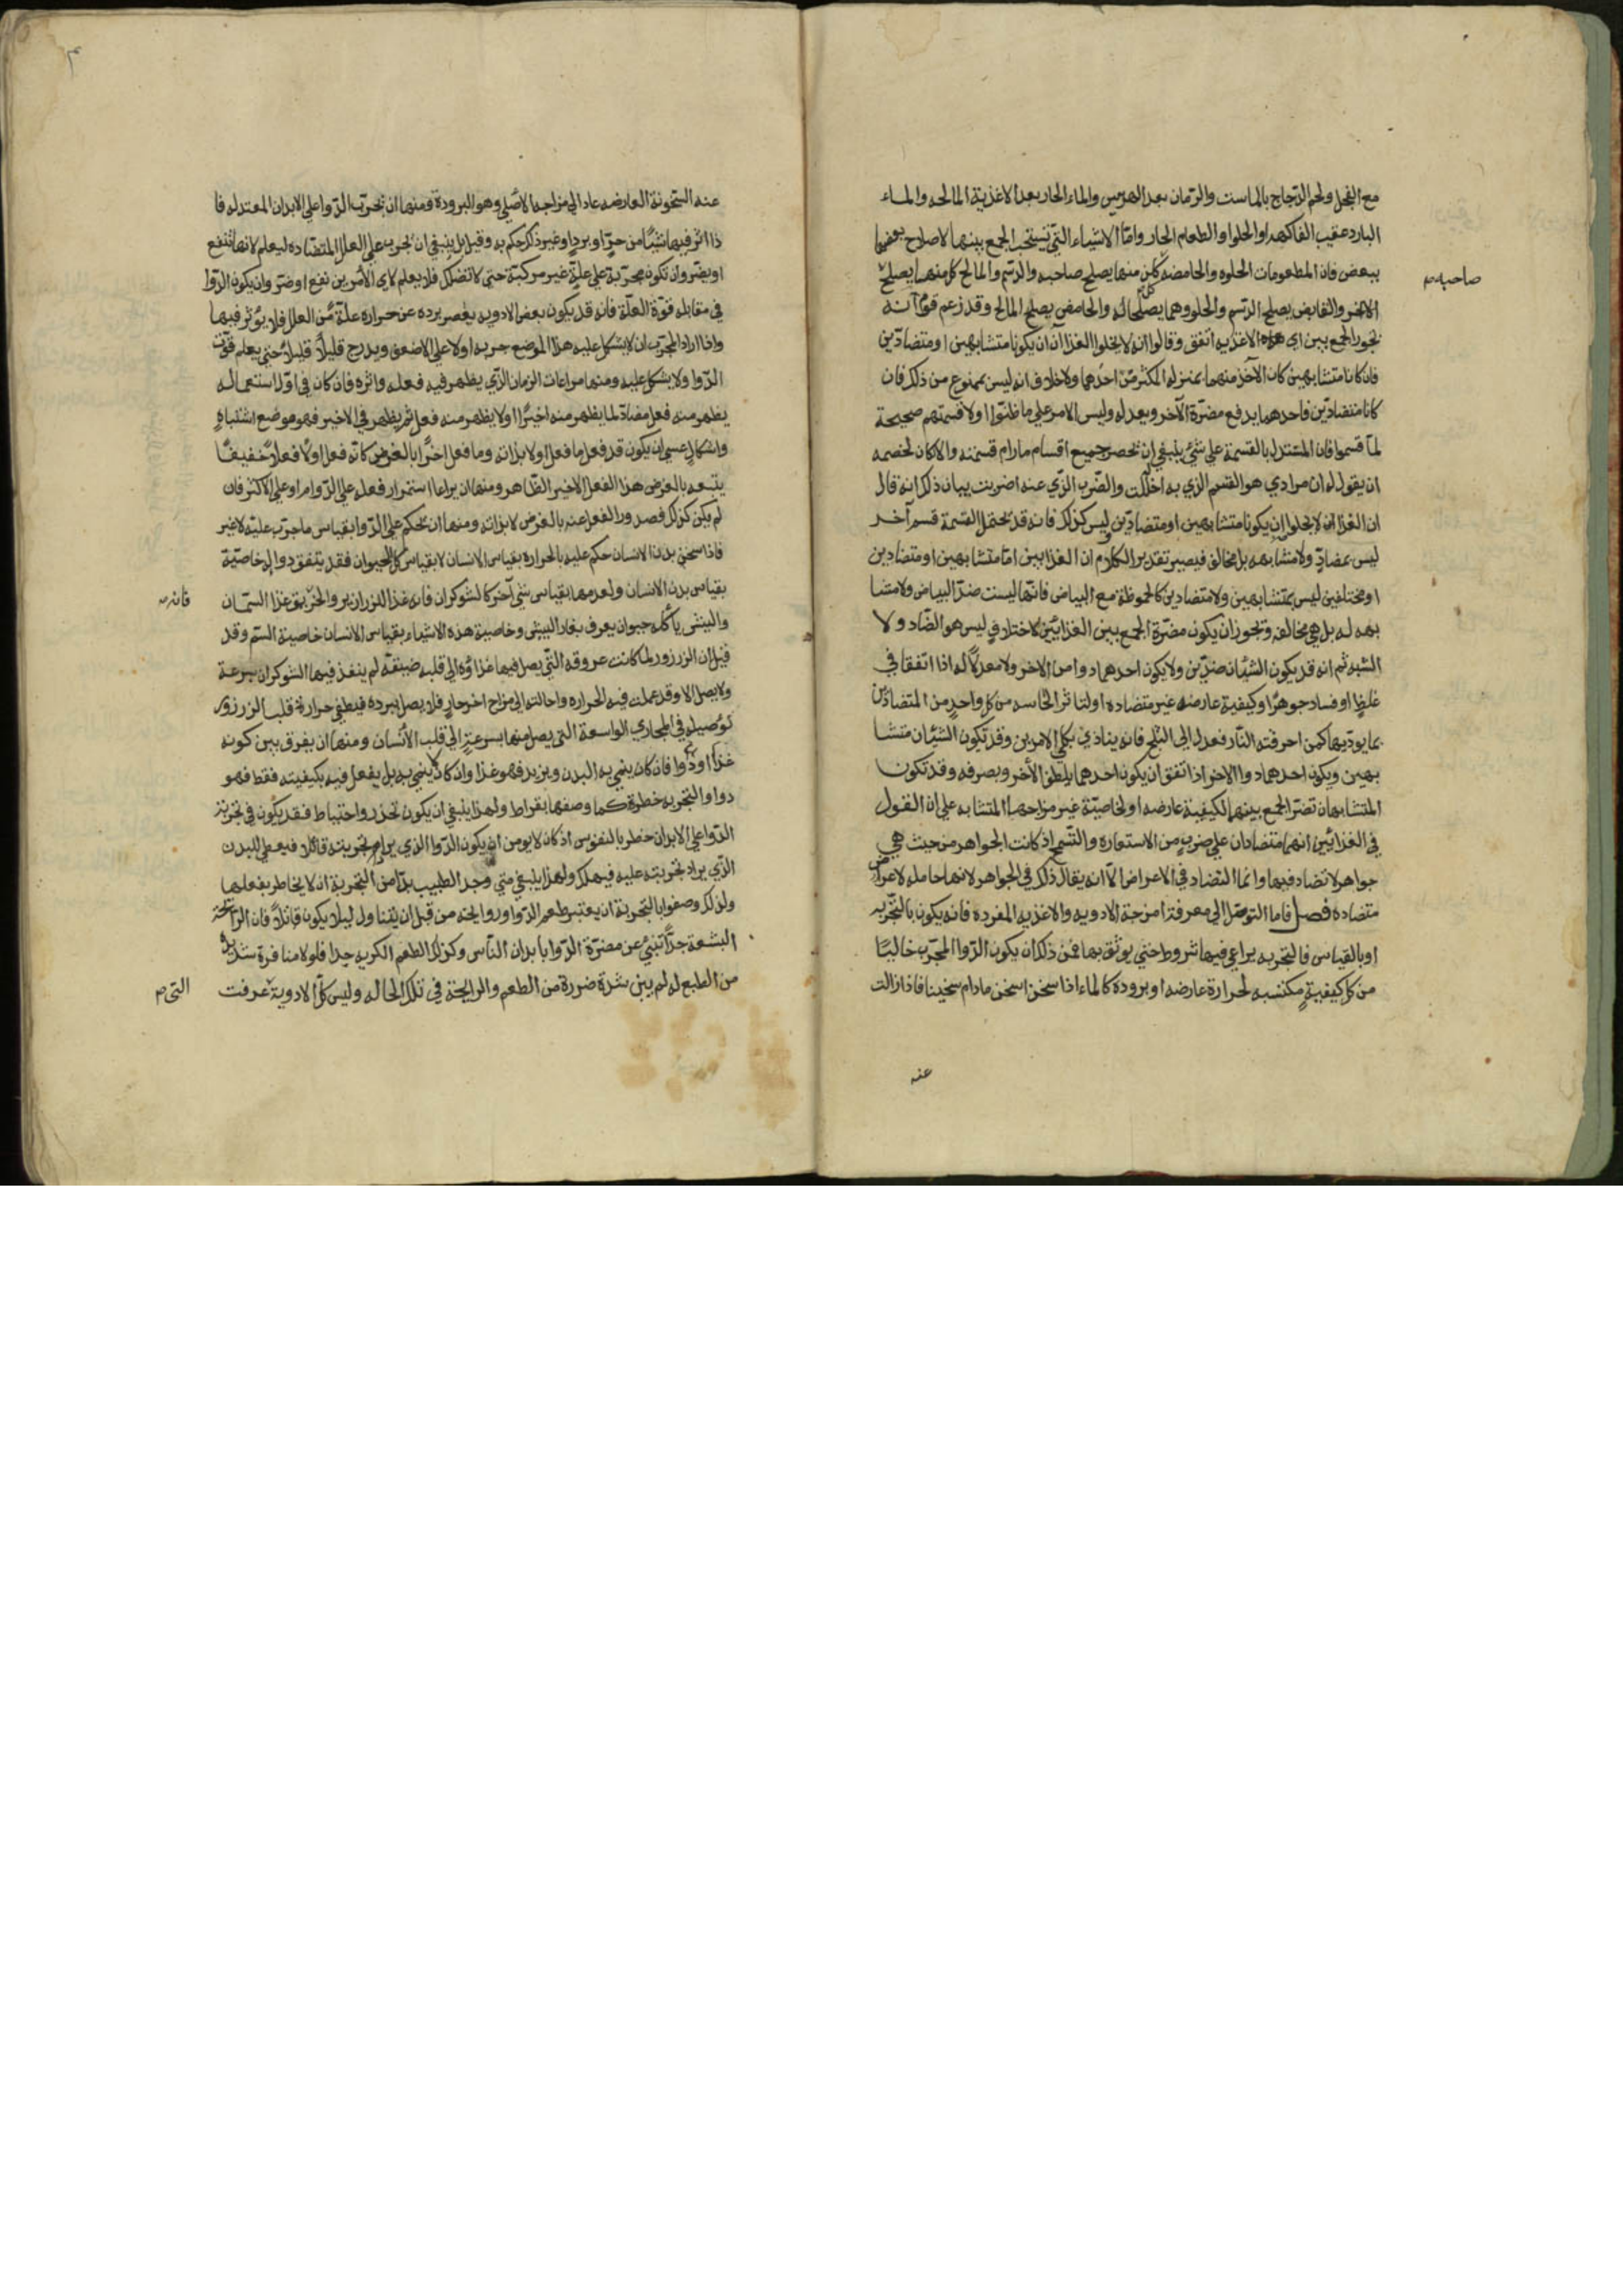 مع الفجل ولحم الدجاج بالماست والرمان بعد الهريس والماء الحار بعد الاغذية المالحه والماء
البارد عقيب الفاكهه او الحلوا والطعام الحار وامّا الاشياء التي تستحب الجمع بينها لاصلاح بعضها
ببعض فان المطعومات الحلوه والحامضه كل منهما يصلح صاحبه والدسم والمالح كل منهما يصلح
صاحبه
الاخر والقابض يصلح الدسم والحلو وهما يصلحان له والحامض يصلح المالح وقد زعم قوم انه
يجوز الجمع بين اي هذه الاغذيه اتفق وقالوا انه لا يخلوا الغذاآن ان يكونا متشابهين او متضادّين
فان كانا متشابهين كان الآخذ منهما بمنزله المكثر من احدهما ولا خلاف انه ليس بممنوع من ذلك فان
كانا متضادّين فاحدهما يدفع مضرّة الآخر ويعدله وليس الامر على ما ظنّوا اولا قسمتهم صحيحة
لما قسموا فان المستدل بالقسمة على شئ ينبغي ان تحصر جميع اقسام مارام قسمته والا كان لخصمه
ان يقول له ان مرادي هو القسم الذي به اخللت والضّرب الذي عنه اضربت بيان ذلك انه قال
ان الغذاان لا يخلوا ان يكونا متشابهين او متضادّين وليس كذلك فانه قد تحتمل القسمة قسم آخر
ليس بمضادٍّ ولا متشابهه بل مخالف فيصير تقدير الكلام ان الغذايين اما متشابهين او متضادين
او مختلفين ليس بمتشابهين ولا متضادين كالحموظة مع البياض فانّها ليست ضدّ البياض ولا متشا
بهه له بل هي مخالفه وتجوز ان يكون مضرّة الجمع بين الغذايين لاختلاف ليس هو الضّاد ولا
الشبه ثم انه قد يكون الشيئان ضدّين ولا يكون احدهما دوا من الاخر ولا معدلاً له اذا اتفقا في
غلظٍ او فساد جوهر او كيفية عارضه غير متضاده اولتاثر الحاسه من كل واحدٍ من المتضادّين
بما يوديها كمن احرقته النّار فعدل الى الثلج فانه يتاذي بكلي الامرين وقد تكون الشيئان متشا
بهين ويكون احدهما دوا الاخر اذا اتفق ان يكون احدهما يلطف الأخر ويصرفه وقد تكون
المتشابهان تضرّ الجمع بينهما لكيفية عارضه او لخاصيّة غير مزاجهما المتشابه على ان القول
في الغذايين انهما متضادان على ضربٍ من الاستعاره والتسّمح اذ كانت الجواهر من حيث هي
جواهر لا تضاد فيها وانما التضاد في الاعراض الّا انه يقال ذلك في الجواهر لانها حامله لاعراض
متضاده فصل فاما التوصّل الى معرفة امزجة الادويه والاغذيه المفرده فانه يكون بالتّجربه
او بالقياس فالتجربه يراعي فيها شروط حتي يوثق بها فمن ذلك ان يكون الدّوا المجرّب خاليًا
من كل كيفيةٍ مكتسبه لحرارة عارضه او برودة كالماء اذا سخن اسخن مادام سخينا فاذا زالت
عنه
عنه السّخونة العارضه عاد الي مزاجه الاصلي وهو البرودة ومنها ان تجرّب الدّوا على الابدان المعتدله فا
ذا اثر فيها شيئًا من حرٍّ او بردٍ او غير ذلك حكم به وقيل بل ينبغي ان تجرب على العلل المتضاده ليعلم لانها تنفع
او يضر وان تكون مجرّبة على علةٍ غير مركبة حتي لا تضلك فلا يعلم لاي الأمرين نفع او ضرّ وان يكون الدّوا
في مقابله قوّة العلّة فانه قد يكون بعض الادويه يقصر برده عن حراره علّة من العلل فلا يؤثر فيها
واذا اراد المجرّب ان لا يشكل عليه هذا الموضع جربه اولا على الاضعف ويدرج قليلاً قليلاً حتي يعلم قوّت
الدّوا ولا يشكل عليه ومنها مراعات الزمان الذي يظهر فيه فعله واثره فان كان في اوّل استعماله
يظهر منه فعل مضادّ لما يظهر منه اخيرًا اولا يظهر منه فعل ثم يظهر في الاخير فهو موضع اشتباهٍ
واشكالٍ عسي ان يكون قد فعل ما فعل اولا بذاته وما فعل اخرًا بالعرض كانّه فعل اولًا فعلاً خفيفًا
يتبعه بالعرض هذا الفعل الاخير الظّاهر ومنها ان يراعا استمرار فعله على الدّوام او على الاكثر فان
لم يكن كذلك فصدور الفعل عنه بالعرض لا بذاته ومنها ان يحكم على الدّوا بقياس ما جرّب عليه لا غير
فاذا سخن بدن الانسان حكم عليه بالحرارة بقياس الانسان لا بقياس كل الحيوان فقد يتفق دوا له خاصيّة
بقياس بدن الانسان ولعدمها بقياس شي آخر كالشوكران فانه غذا للزرازير والخربق غذا السمّان
فانه
والبيش ياكله حيوان يعرف بفار البيش وخاصية هذه الاشياء بقياس الانسان خاصية السّم وقد
قيل ان الزرزور لما كانت عروقه التي يصل فيها غذاؤه الي قلبه ضيقه لم ينفذ فيها الشوكران بسرعة
ولا يصل الا وقد عملت فيه الحراره واحالته الي مزاج اخر حار فلا يصل ببرده فيطفي حرارة قلب الزرزور
كوصيله في المجاري الواسعة التي يصل منها بسرعةٍ الي قلب الأنسان ومنها ان يفرق بين كونه
غذاً او دوا فان كان ينمي به البدن ويزيد فهو غذا وان كان لا ينمي به بل يفعل فيه بكيفيته فقط فهو
دوا والتجربه خطرة كما وصفها بقراط ولهذا ينبغي ان يكون تحذر واحتياط فقد يكون في تجربة
الدّوا على الابدان خطر بالنفوس اذ كان لا يومن ان يكون الدّوا الذي يرام تجربته قاتلا فيعطي للبدن
الذي يراد تجربته عليه فيهلك ولهذا ينبغي متي وجد الطبيب بدًّا من التجربة ان لا يخاطر بفعلها
ولذلك وصفوا بالتجربة ان يعتبر طعم الدّوا وروايحته من قبل ان يتناول ليلا يكون قاتلاً فان الرّائحة
البشعة جدًّا تنبئ عن مضرّة الدّوا بابدان النّاس وكذلك الطعم الكريه جدا فلولا منافرة شديدة
من الطبع له لم يتبن شدة ضرورة من الطعم والرايحة في تلك الحاله وليس كل الادوية عرفت
التي